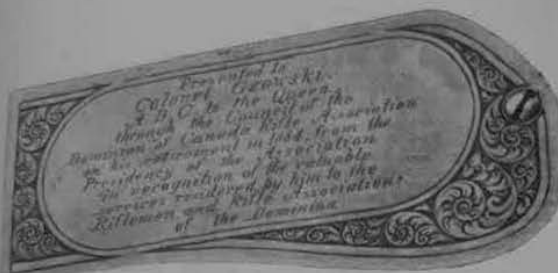 Presented to
Colonel Gzowski.
A.D.C. to the Queen.
through the Council of the
Dominion of Canada Rifle Association
on his retirement in from the
Presidency of the Association
in recognition of the valuable
services rendered by him to the
Riflemen and Rifle Associations
of the Dominion